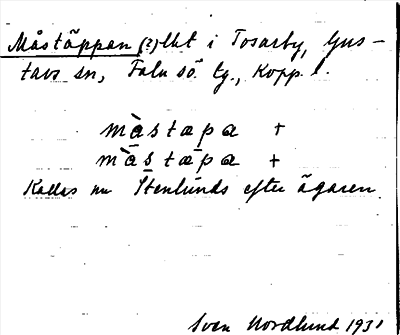 Måståppan (?) lht i Tosarby, Gus-
tavs sn, Falu sö. tg., Kopp. l.
måstæpa +
måstæpa +
Kallas nu Stenlunds efter ägaren.
Sven Nordlund 1931